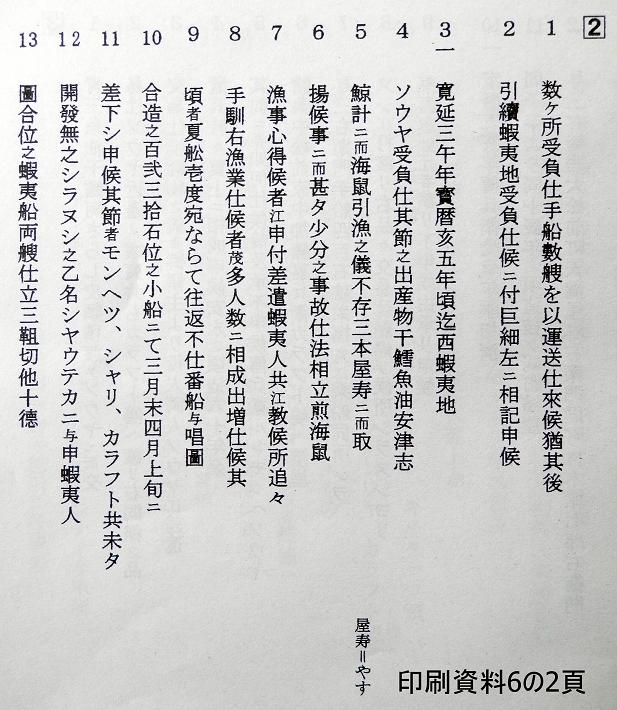 2
1 数ヶ所受負仕手船數艘を以運送仕來候猶其後
2 引續蝦夷地受負仕候ニ付巨細左ニ相記申候
3 一 寛延三午年寳暦亥五年頃迄西蝦夷地
4 ソウヤ受負仕其節之出産物干鱈魚油安津志
5 鯨計ニ而海鼠引漁之儀不存三本屋寿ニ而取
屋寿=やす
6 揚候事ニ而甚タ少分之事故仕法相立煎海鼠
7 漁事心得候者江申付差遣蝦夷人共江教候所追々
8 手馴右漁業仕候者茂多人数ニ相成出増仕候其
9 頃者夏舩壱度宛ならて往返不仕番船与唱圖
10 合造之百弐三拾石位之小船ニて三月末四月上旬ニ
11 差下シ申候其節者モンヘツ、シャリ、カラフト共未タ
12 開發無之シラヌシ之乙名シヤウテカニ与申蝦夷人
13 圖合位之蝦夷船両艘仕立三靻切他十德
印刷資料6の2頁